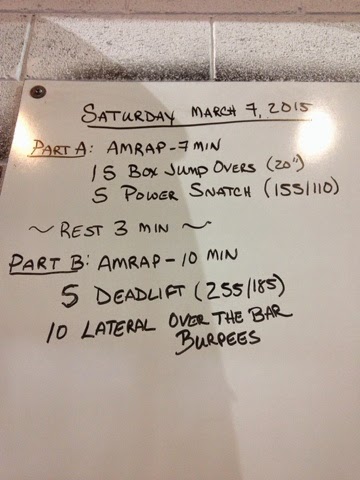 SATURDAY MARCH 7, 2015
PART A: AMRAP-7 MIN
15 BOX JUMP OVERS (20")
5 POWER SNATCH (155/110)
~ REST 3 MIN ~
PART B: AMRAP-10 MIN
5 DEADLIFT (255/185)
10 LATERAL OVER THE BAR
BURPEES